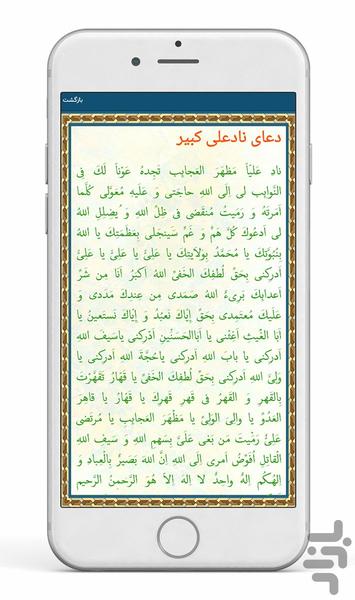 بازگشت
دعای نادعلی کبیر
نادِ عَلیّاً مَظهَرَ العَجایِبِ تَجِدهُ عَوْناً لَکَ فِی
النَّوایِبِ لی اِلَی اللهِ حاجَتی وَ عَلَیهِ مُعَوَّلی کُلَّما
اَمَرتَهُ وَ رَمَیتُ مُنقَضی فی ظِلِّ اللهِ وَ یُضلِلِ اللهُ
لی اَدعُوکَ کُلَّ هَمٍّ وَ غَمٍّ سَیَنجَلی بِعَظَمَتِکَ یا اللهُ
بِنُبُوَّتِکَ یا مُحَمَّدُ بِوِلایَتِکَ یا عَلیُّ یا عَلیُّ یا عَلیُّ
اَدرِکنی بِحَقِّ لُطفِکَ الخَفیِّ اللهُ اَکبَرُ اَنَا مِن شَرِّ
اَعدائِکَ بَریءٌ اللهُ صَمَدی مِن عِندِکَ مَدَدی وَ
عَلَیکَ مُعتَمِدی بِحَقِّ اِیّاکَ نَعبُدُ وَ اِیّاکَ نَستَعینُ یا
اَبَا الغَیثِ اَغِثنی یا اَبَاالحَسَنَینِ اَدرِکنی یاسَیفَ اللهِ
اَدرِکنی یا بابَ اللهِ اَدرِکنی یاحُجَّةَ اللهِ اَدرِکنی یا
وَلیَّ اللهِ اَدرِکنی بِحَقِّ لُطفِکَ الخَفیِّ یا قَهّارُ تَقَهَّرتَ
بِالقَهرِ وَ القَهرُ فی قَهرِ قَهرِکَ یا قَهّارُ یا قاهِرَ
العَدُوِّ یا والِیَ الوَلیِّ یا مَظهَرَ العَجایِبِ یا مُرتَضی
عَلیُّ رَمَیتَ مَن بَغی عَلَیَّ بِسَهمِ اللهِ وَ سَیفِ اللهِ
القاتِلِ اُفَوِّضُ اَمری اِلَی اللهِ اِنَّ اللهَ بَصیرٌ بِالعِبادِ وَ
اِلهُکُم اِلهٌ واحِدٌ لا اِلهَ اِلاّ هُوَ الرَّحمنُ الرَّحیمُ
بازار